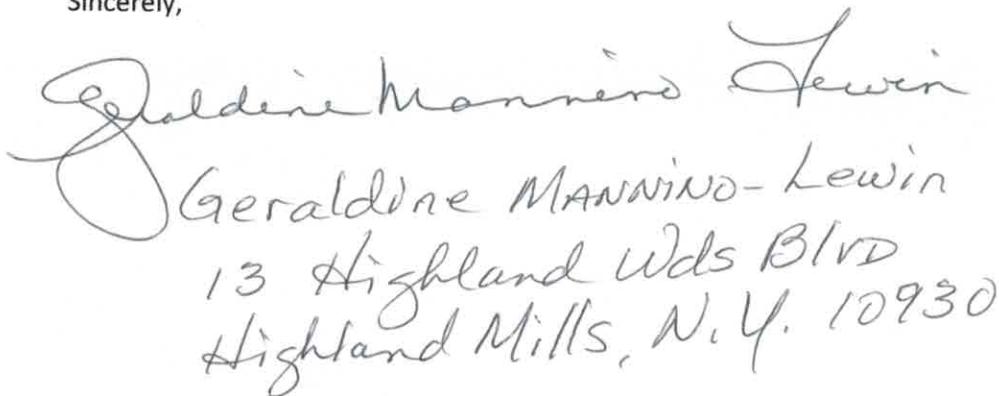 Sincerely,
Geraldine Mannino Lewin
Geraldine MANNINO-Lewin
13 Highland Wds Blvd
Highland Mills, N.Y. 10930